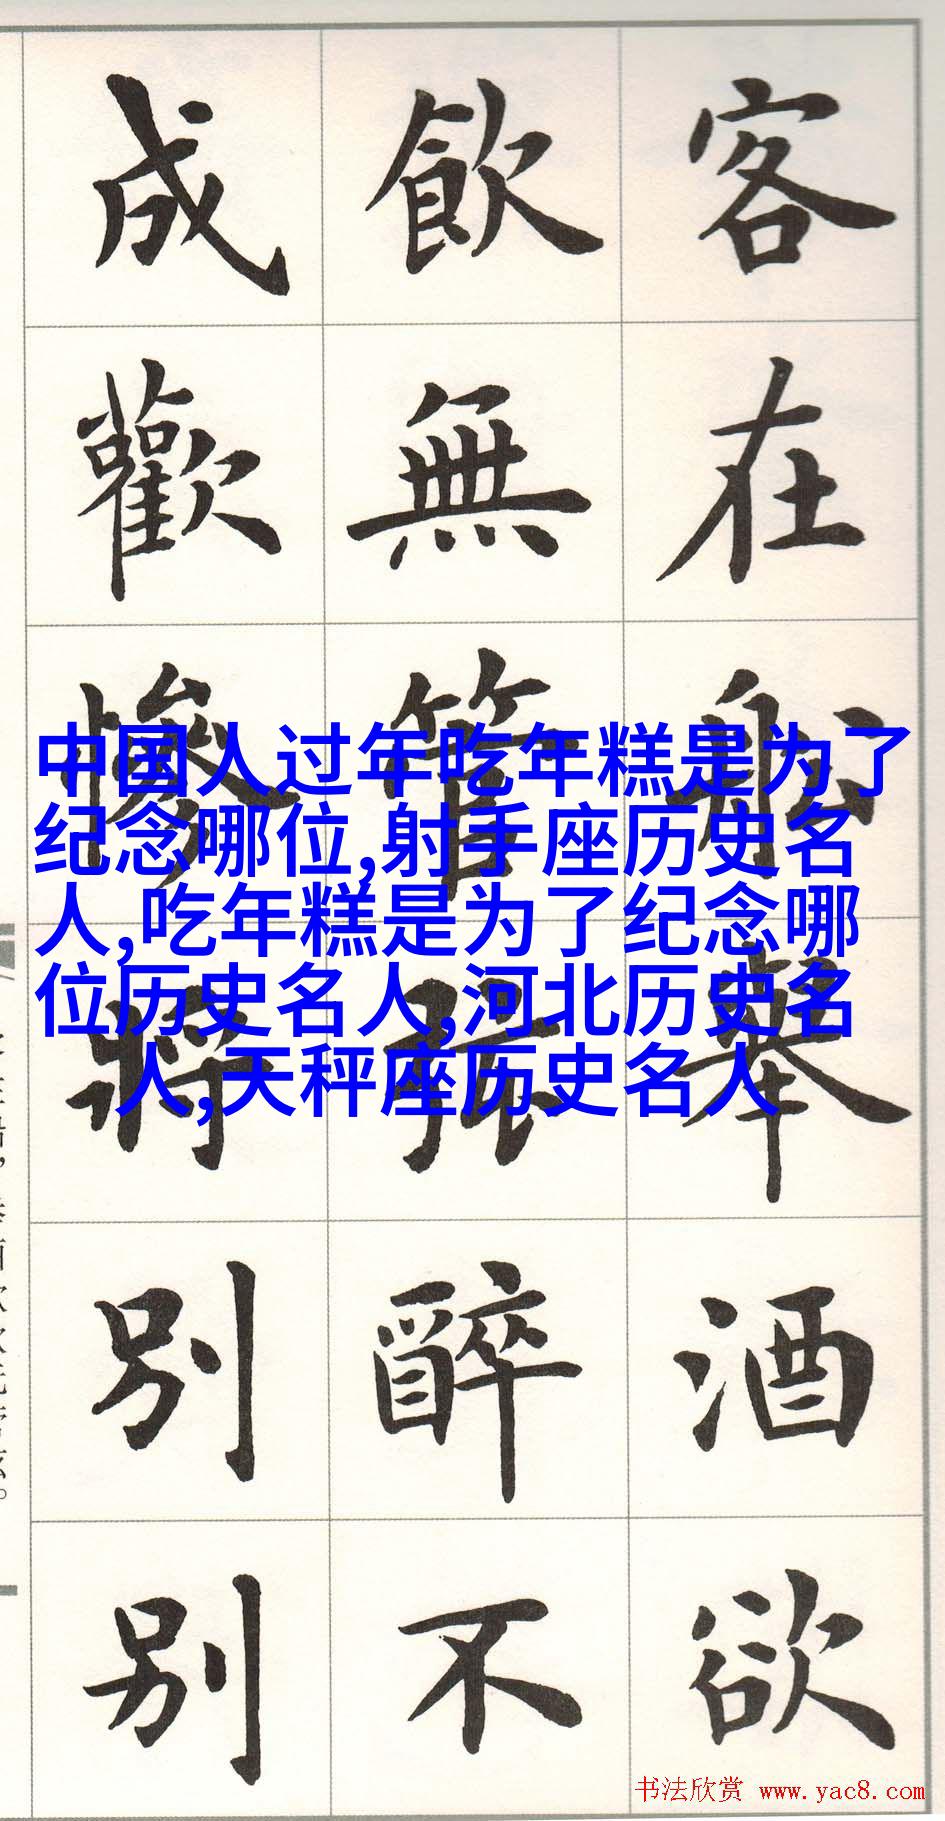 客在船舉酒欲
飲無管弦醉不
成歡慘將別別
中国人过年吃年糕是为了
纪念哪位,射手座历史名
人,吃年糕是为了纪念哪
位历史名人,河北历史名
人,天秤座历史名人
书法欣赏 www.yac8.com